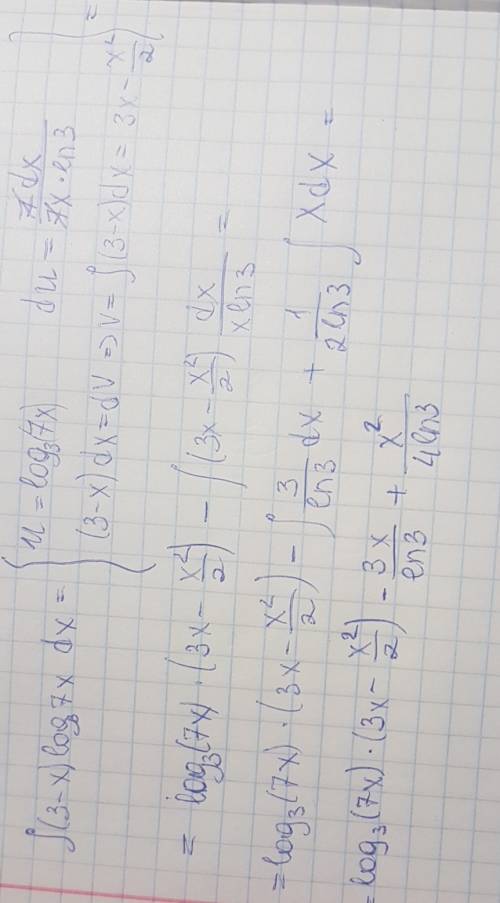 ∫(3-x)log₃7x dx = { u = log₃(7x)   du = 7dx/(7x·ln3)
(3-x)dx = dV => V = ∫(3-x)dx = 3x - x²/2 } =
= log₃(7x)·(3x - x²/2) - ∫(3x - x²/2) dx/(x ln3) =
= log₃(7x)·(3x - x²/2) - ∫ 3/ln3 dx + 1/(2ln3) ∫ x dx =
= log₃(7x)·(3x - x²/2) - 3x/ln3 + x²/(4ln3)